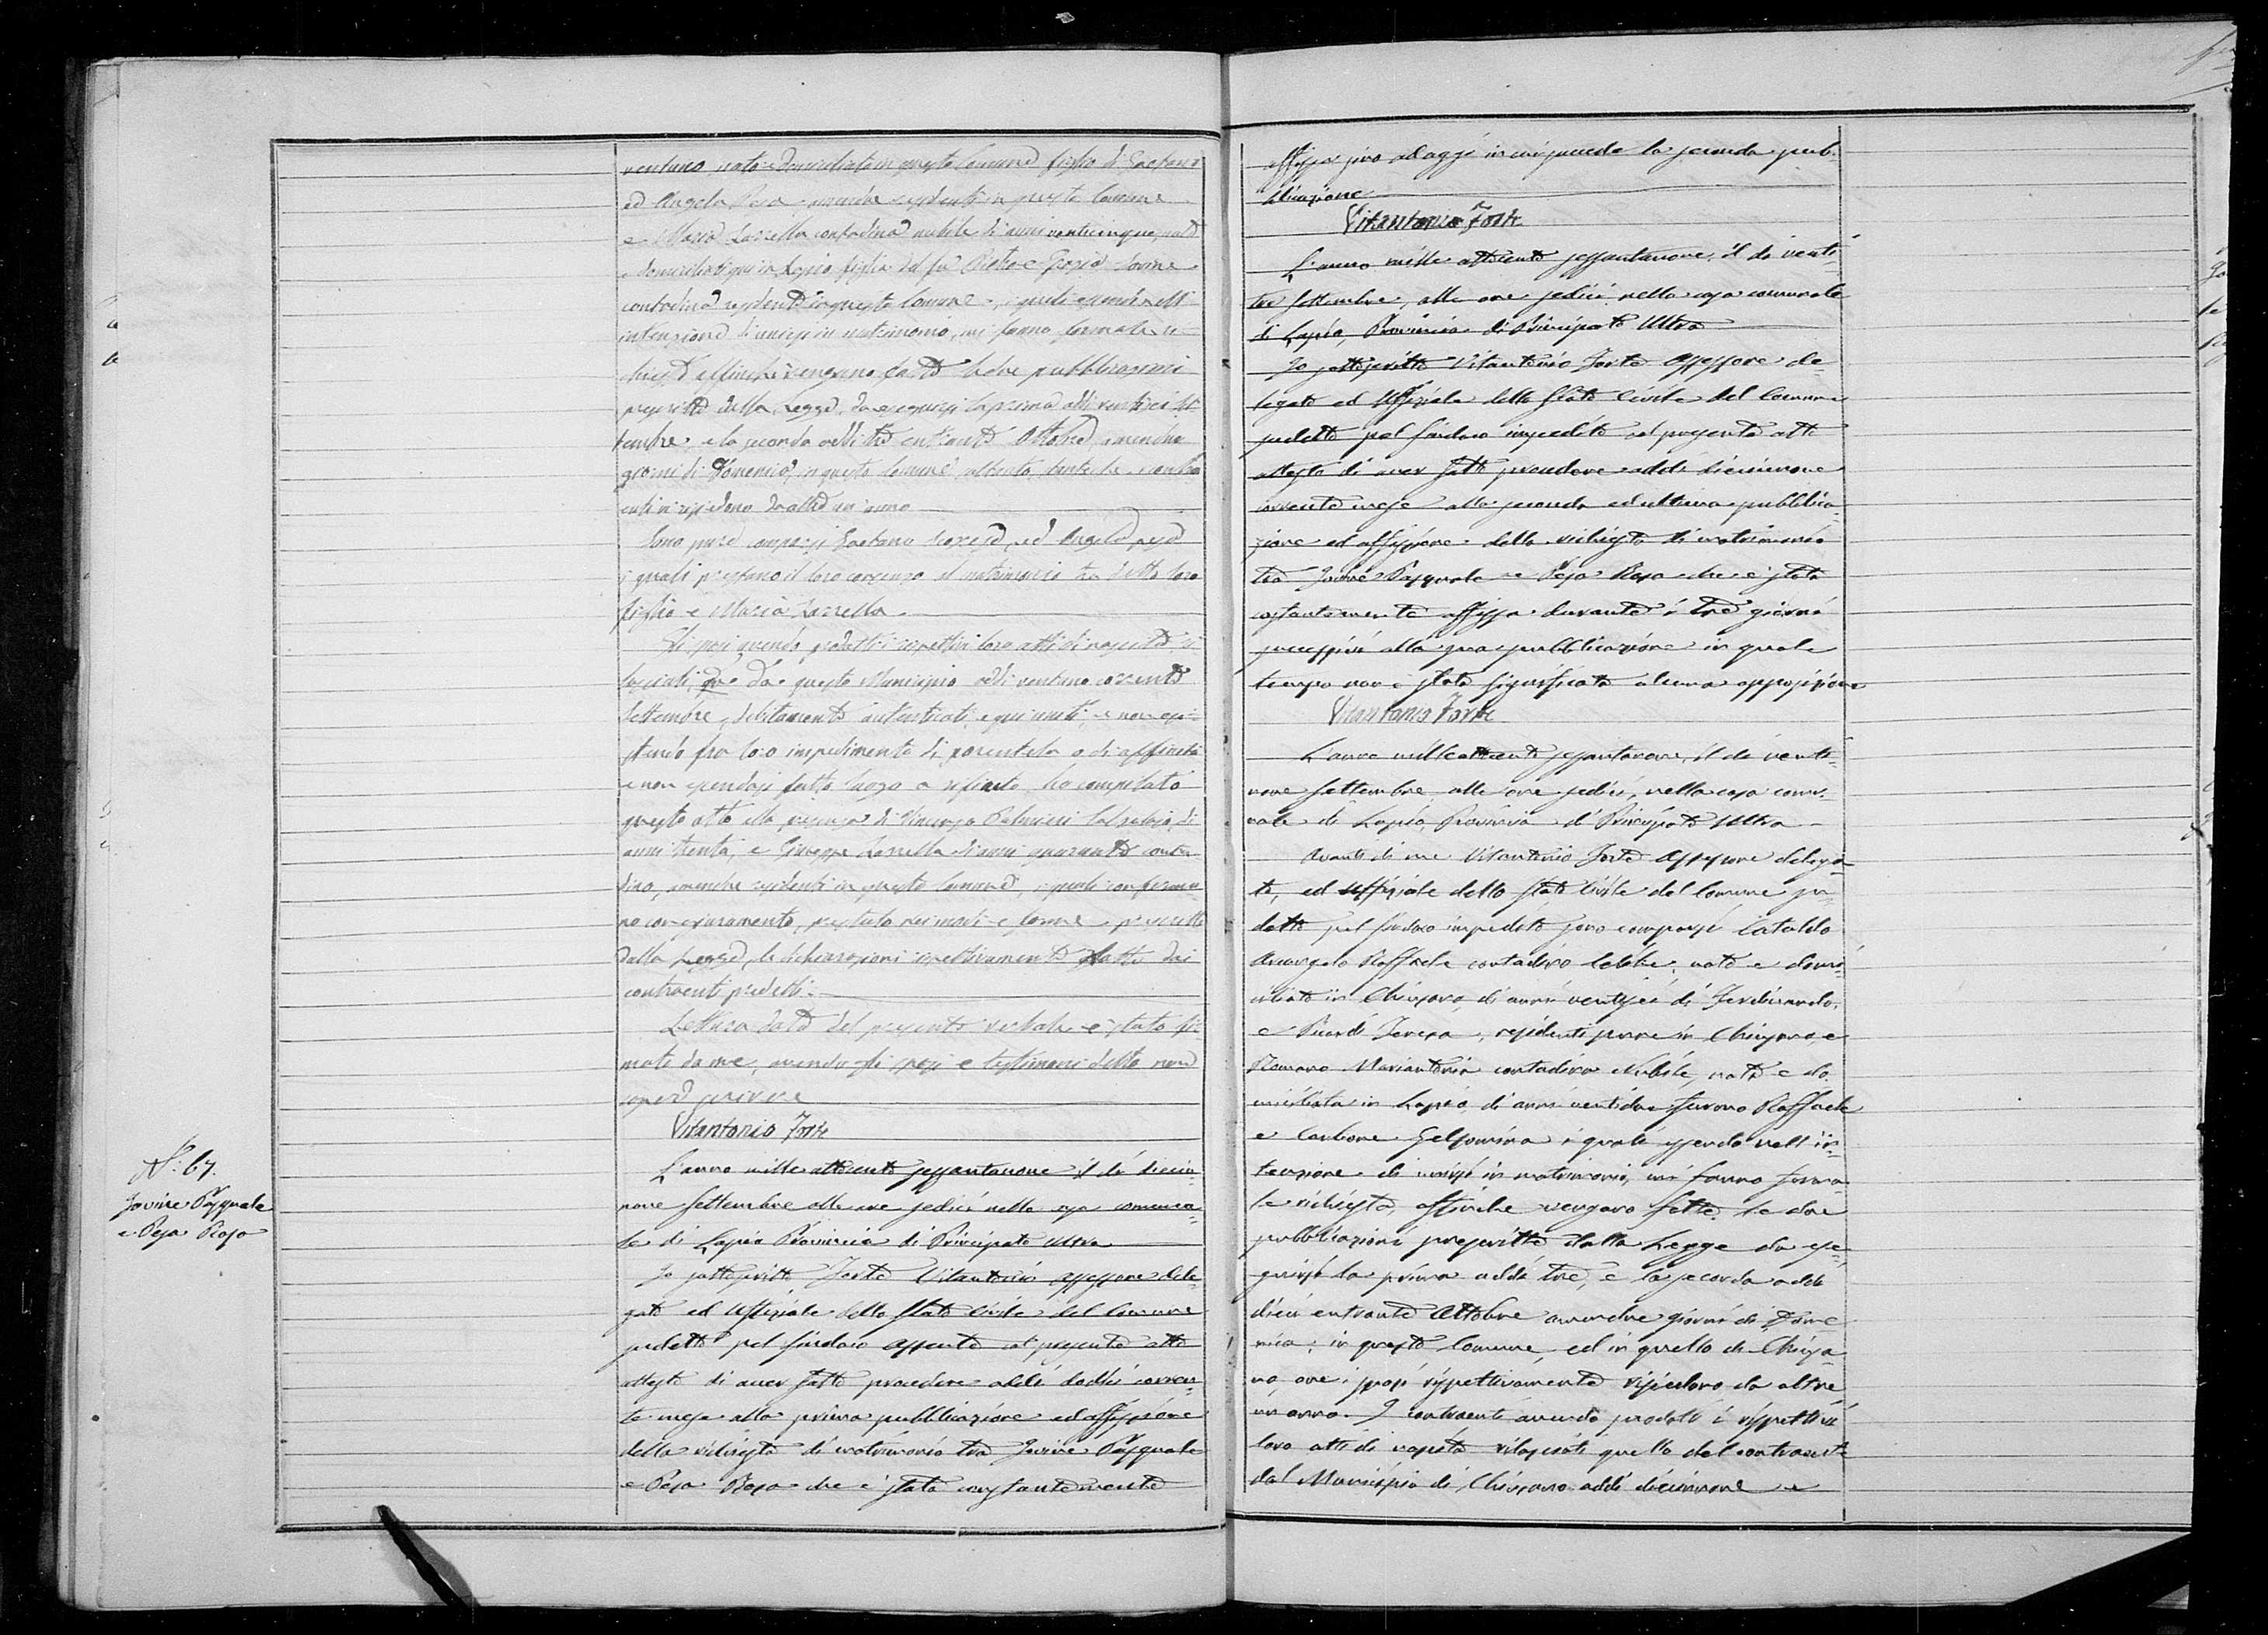 ventuno, nato e domiciliato in questo Comune figlio di Gaetano
ed Angela Pesa amendue residenti in questo Comune
e Maria Zarrella contadina nubile di anni venticinque, nata
e domiciliata qui in Lapio figlia del fu Pietro e Grazia Iovine
contadina residente in questo Comune, i quali essendo nell'
intenzione di unirsi in matrimonio, mi fanno formale ri-
chiesta affinchè vengano fatte le due pubblicazioni
prescritte dalla Legge, da eseguirsi la prima addì ventisei Set-
tembre, e la seconda addì tre entrante Ottobre amendue
giorni di Domenica, in questo Comune, attento che i contra
enti vi risiedono da oltre un anno
Sono pure comparsi Gaetano ed Angela Pesa
i quali prestano il loro consenso al matrimonio tra detto loro
figlio e Maria Zarrella.
Gli sposi avendo prodotti i rispettivi loro atti di nascita ri-
lasciati da questo Municipio addì ventuno corrente
Settembre, debitamente autenticati, e qui uniti, e non esi-
stendo fra loro impedimento di parentela o di affinità
e non essendosi fatto luogo a rifiuto, ho compilato
questo atto alla presenza di Vincenzo Palmieri Calzolaio, di
anni trenta, e Giuseppe Zarrella di anni quaranta conta
dino, amendue residenti in questo Comune, i quali conferma-
no con giuramento, prestato nei modi e forme prescritte
dalla Legge, le dichiarazioni rispettivamente fatte dai
contraenti predetti.
Lettura data del presente verbale è stato fir-
mato da me, avendo gli sposi e testimoni detto non
sapere scrivere
Vitantonio Forte
N.º 67.
Iovine Pasquale
e Pesa Rosa
L'anno mille ottocento sessantanove il dì dician-
nove Settembre alle ore sedici nella casa comuna-
le di Lapio Provincia di Principato Ultra
Io sottoscritto Forte Vitantonio assessore dele-
gato ed Uffiziale dello Stato Civile del Comune
sudetto pel Sindaco assente al presente atto
attesto di aver fatto procedere addì dodici corren-
te mese alla prima pubblicazione ed affissione
della richiesta di matrimonio tra Iovine Pasquale
e Pesa Rosa che è stata costantemente
affissa sino ad oggi in cui procedo la seconda pub-
blicazione
Vitantonio Forte
L'anno mille ottocento sessantanove, il dì venti-
tre Settembre, alle ore sedici nella casa comunale
di Lapio, Provincia di Principato Ultra
Io sottoscritto Vitantonio Forte Assessore de-
legato ed Uffiziale dello Stato Civile del Comune
sudetto pel Sindaco impedito al presente atto
attesto di aver fatto procedere addì diciannove
corrente mese alla seconda ed ultima pubblica-
zione ed affissione della richiesta di matrimonio
tra Iovine Pasquale e Pesa Rosa che è stata
costantemente affissa durante i tre giorni
successivi alla sua pubblicazione in quale
tempo non è stata significata alcuna opposizione
Vitantonio Forte
L'anno milleottocento sessantanove, il dì venti-
nove Settembre alle ore sedici, nella casa comu-
nale di Lapio, Provincia di Principato Ultra
Avanti di me Vitantonio Forte Assessore delega-
to, ed Uffiziale dello Stato Civile del Comune su-
detto pel Sindaco impedito sono comparsi Cataldo
Arcangelo Raffaele contadino celibe, nato e domi-
ciliato in Chiusano, di anni ventisei di Ferdinando,
e Teresa, residenti pure in Chiusano, e
Romano Mariantonia contadina Nubile, nata e do
miciliata in Lapio, di anni ventidue furono Raffaele
e Carbone Gelsomina i quali essendo nell'in-
tenzione di unirsi in matrimonio, mi fanno forma-
le richiesta, affinchè vengano fatte le due
pubblicazioni prescritte dalla Legge da ese-
guirsi la prima addì tre, e la seconda addì
dieci entrante Ottobre amendue giorni di Dome-
nica; in questo Comune, ed in quello di Chiusa-
no, ove i sposi rispettivamente risiedono da oltre
un anno. I contraenti avendo prodotti i rispettivi
loro atti di nascita rilasciati quello del contraente
dal Municipio di Chiusano addì diciannove e